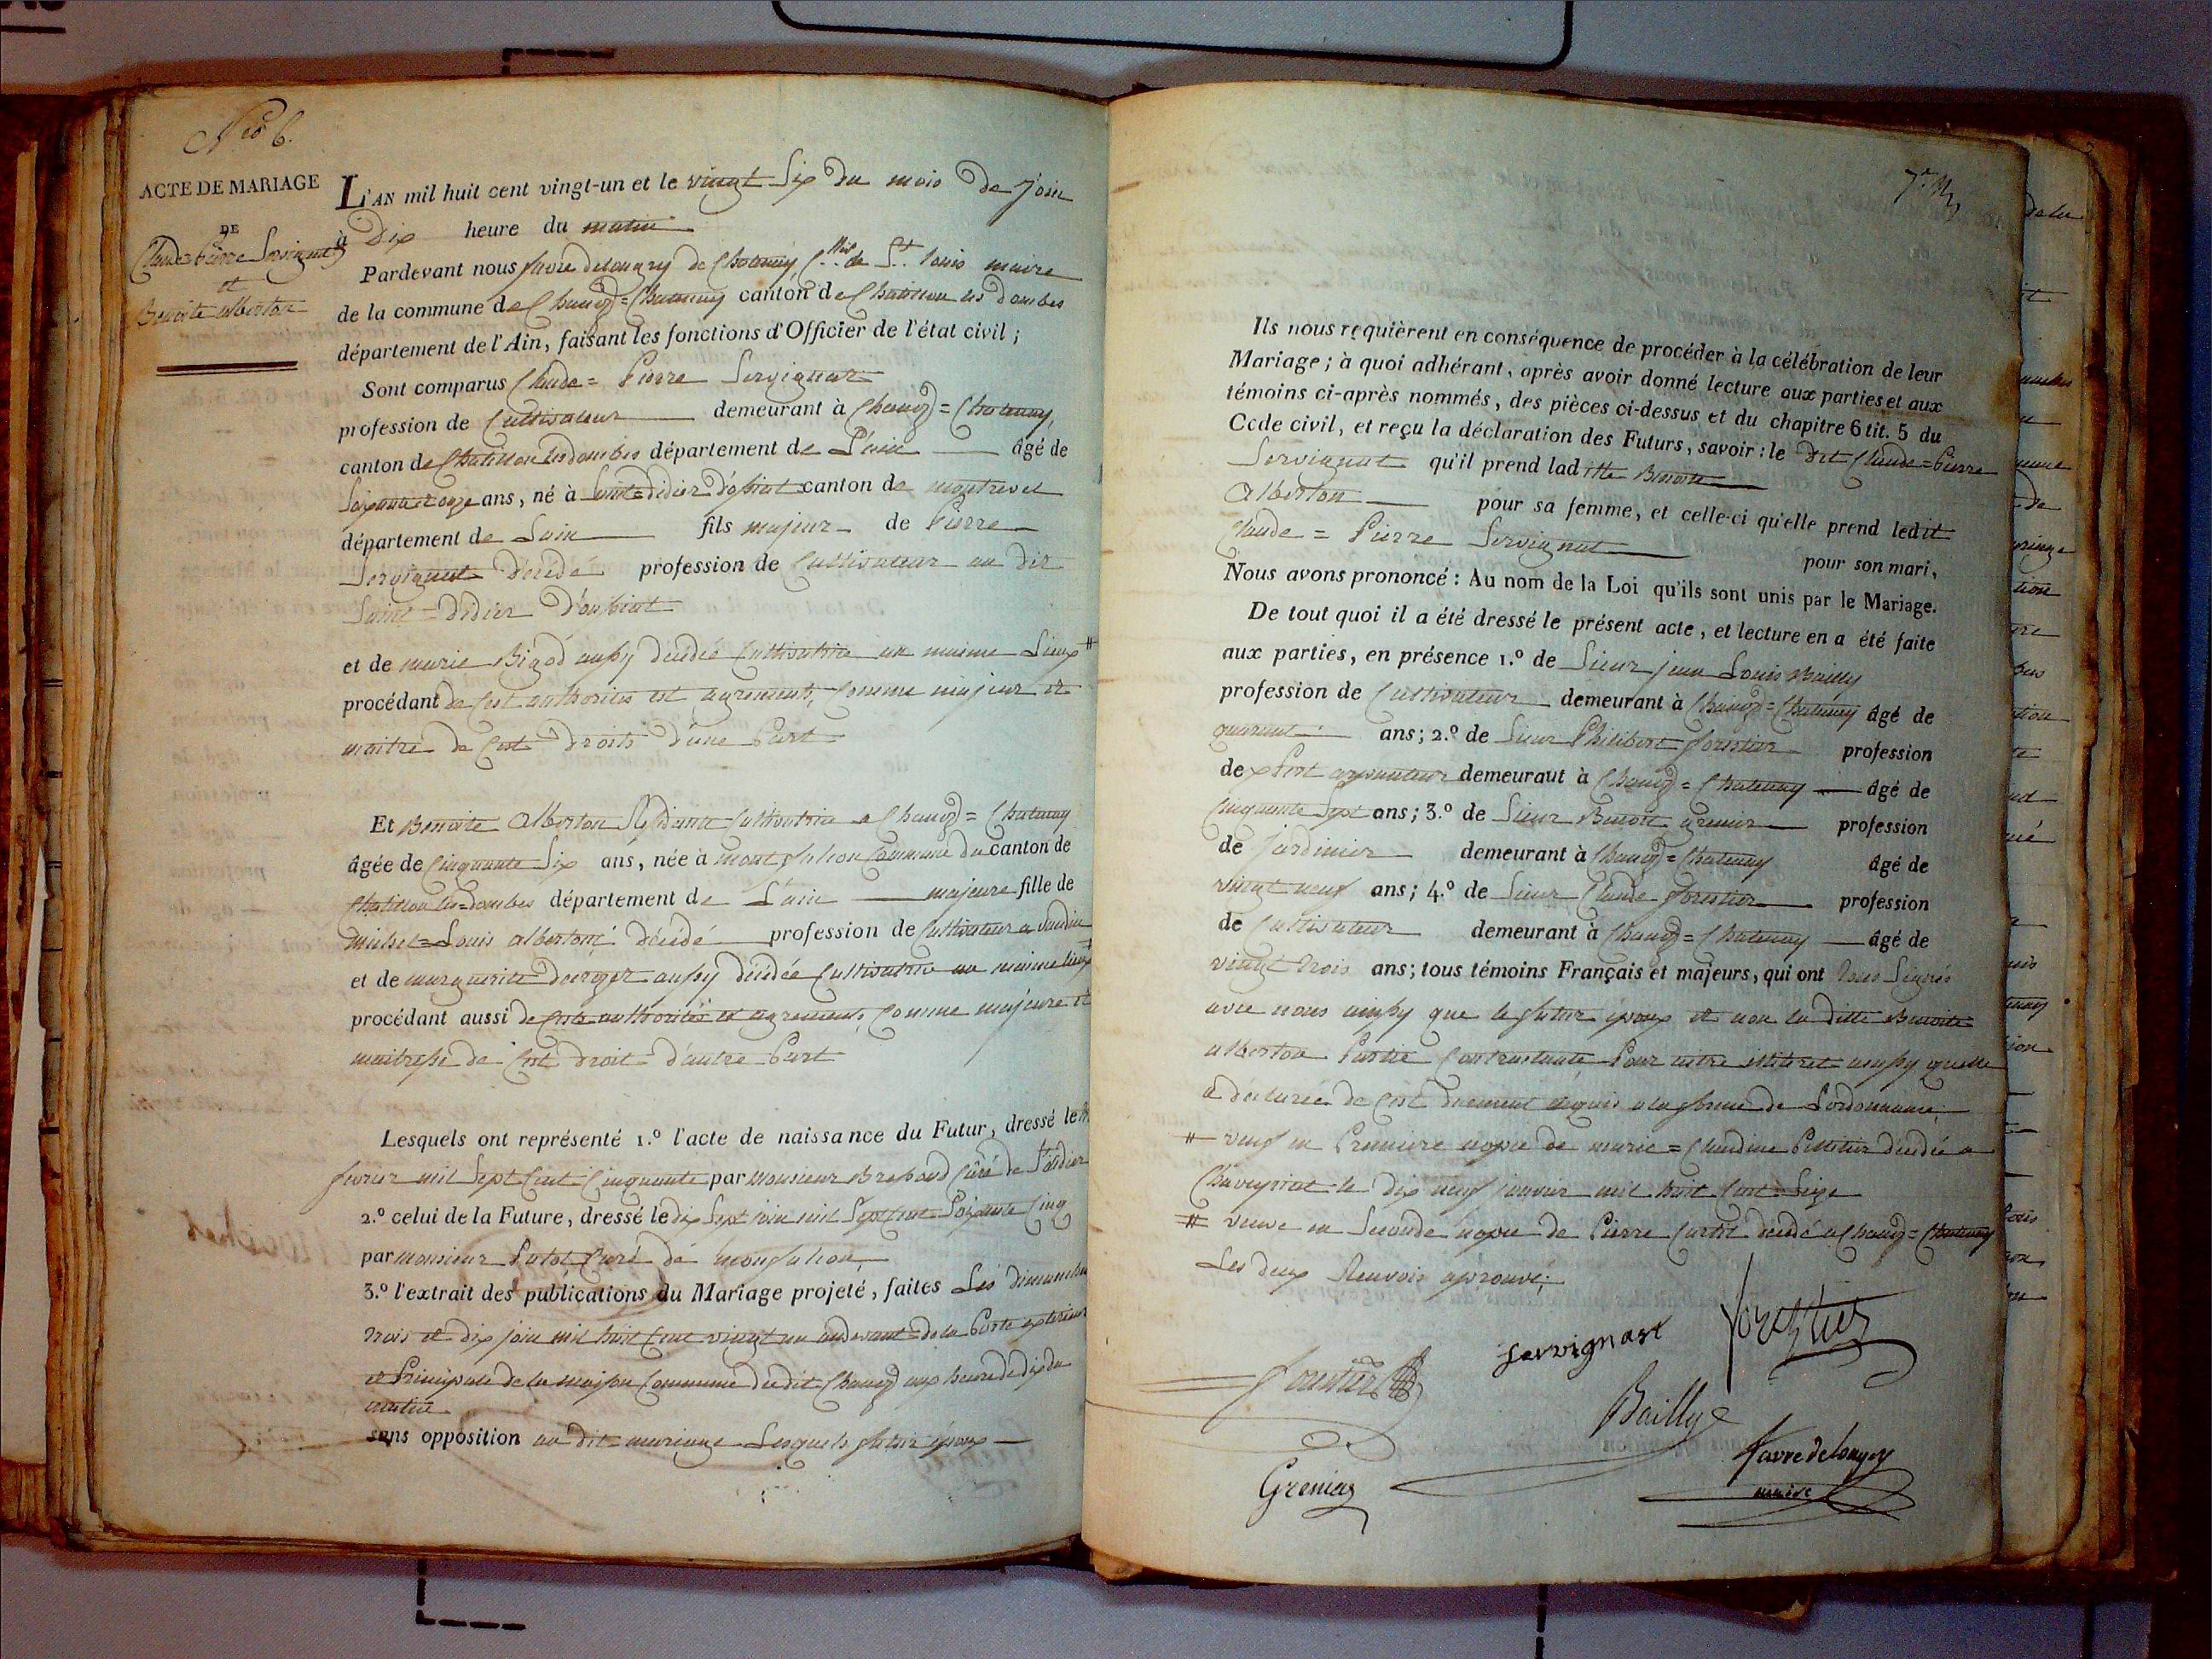 N.ro 6.
ACTE DE MARIAGE
DE
Claude=Pierre Servignat
et
Benoite alberton
L'AN mil huit cent vingt-un et le vingt Six du mois De join
à Dix heure du matin
Pardevant nous favre delongry de Chatenay de St. louis maire
de la commune de Chanoz=Chatenay canton de Chatillon les dombes
département de l'Ain, faisant les fonctions d'Officier de l'état civil ;
Sont comparus Claude= Pierre Servignat
profession de Cultivateur demeurant à Chanoz=Chatenay,
canton de Chatillon les dombes département de L'ain âgé de
Soixante et onze ans, né à Saint=Didier d'ossiat canton de montrevel
département de Lain fils majeur de Pierre
Servignat Décédé profession de Cultivateur au dit
Saint=Didier D'aussiat
et de marie Bigod aussy décédée Cultivatrice au maime Lieux #
procédant de Cest authorités et agrements, Comme majeur et
maitre de Cest Droits d'une Part
Et Benoite Alberton Résidante Cultivatrice a Chanoz=Chatenay
âgée de Cinquante Six ans, née à mont falcon Commune du canton de
Chatillon les=dombes département de L'ain majeure fille de
michel=Louis alberton décédé profession de Cultivateur a
et de marguerite aussy décédée Cultivatrice au maime lieux #
procédant aussi de Cests authorités et agrements, Comme majeure et
maitresse de Cest droit d'autre Part
Lesquels ont représenté 1.º l'acte de naissance du Futur, dressé le
fevrier mil Sept Cent Cinquante par monsieur Curé de St. didier
2.º celui de la Future, dressé le dix Sept join mil Sept Cent Soixante Cinq
par monsieur Curé de monfalcon
3.º l'extrait des publications du Mariage projeté, faites Les dimanches
trois et dix join mil huit Cent vingt un au devant de la Porte exterieur
et Principale de la maison Commune du dit Chanoz aux heure de dix du
matin
sans opposition au dit mariage Lesquels futur époux
Ils nous requièrent en conséquence de procéder à la célébration de leur
Mariage ; à quoi adhérant, après avoir donné lecture aux parties et aux
témoins ci-après nommés, des pièces ci-dessus et du chapitre 6 tit. 5 du
Code civil, et reçu la déclaration des Futurs, savoir : le Dit Claude=Pierre
Servignat qu'il prend ladite Benoite
Alberton pour sa femme, et celle-ci qu'elle prend ledit
Claude = Pierre Servignat pour son mari,
Nous avons prononcé : Au nom de la Loi qu'ils sont unis par le Mariage.
De tout quoi il a été dressé le présent acte, et lecture en a été faite
aux parties, en présence 1.º de Sieur jean Louis Bailly
profession de Cultivateur demeurant à Chanoz=Chatenay âgé de
quarant ans ; 2.º de Sieur Philibert forestier profession
de demeurant à Chanoz=Chatenay âgé de
Cinquante Sept ans ; 3.º de Sieur Benoit grenier profession
de jardinier demeurant à Chanoz=Chatenay âgé de
vingt neuf ans ; 4.º de Sieur Claude forestier profession
de Cultivateur demeurant à Chanoz=Chatenay âgé de
vingt trois ans ; tous témoins Français et majeurs, qui ont tous Signés
avec nous ainssy que le futur époux et non la ditte Benoite
alberton Partie Contractante Pour aitre illiteret ainssy quelle
a déclarée de Cest duement requis a la forme de Lordonnance,
# veuf en Premiere nopce de marie=Claudine décédée a
Chaveyriat le dix neuf janvier mil huit Cent Seize
# veuve en Seconde nopce de Pierre Curtil décédé a Chanoz=Chatenay
Les deux Renvois aprouvé.
servignat forestier
forestier
Baillye
Grenier
favre delongry
maire